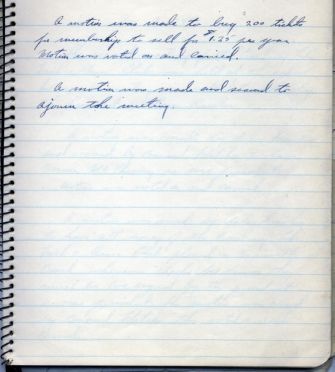 A motion was made to buy 200 tickts
for membership to sell for $1.25 per year
Motion was voted on and carried.
A motion was made and second to
ajourn the meeting.